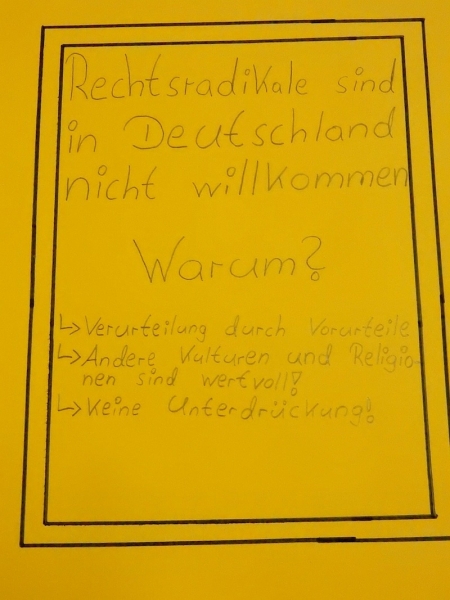 Rechtsradikale sind
in Deutschland
nicht willkommen
Warum?
↳ Verurteilung durch Vorurteile
↳ Andere Kulturen und Religio-
nen sind wertvoll!
↳ Keine Unterdrückung!